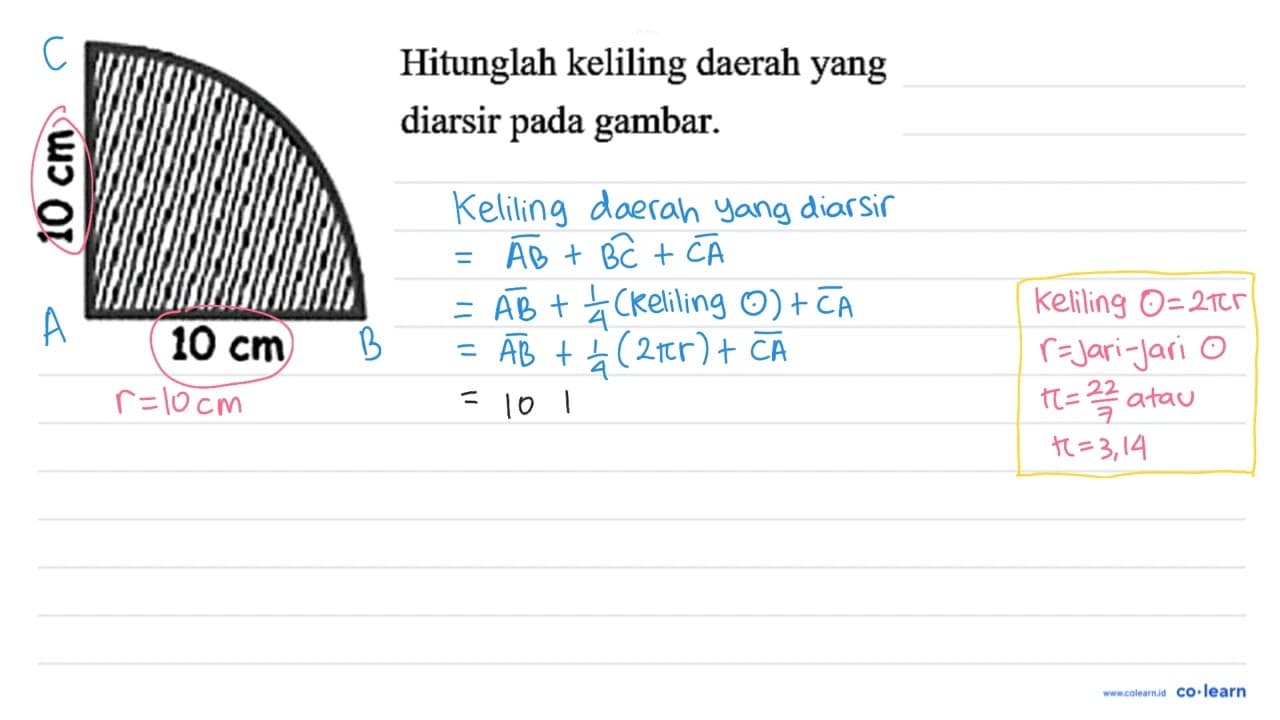 Hitunglah keliling daerah yang
diarsir pada gambar.
C
10 cm
A
10 cm
B
r=10 cm
Keliling daerah yang diarsir
= A̅B̅ + B͡C + C̅A̅
= A̅B̅ + 1/4 (Keliling ⊙) + C̅A̅
= A̅B̅ + 1/4 (2πr) + C̅A̅
= 10 1
Keliling ⊙ = 2πr
r = Jari-Jari ⊙
π = 22/7 atau
π = 3,14
www.colearn.id co·learn